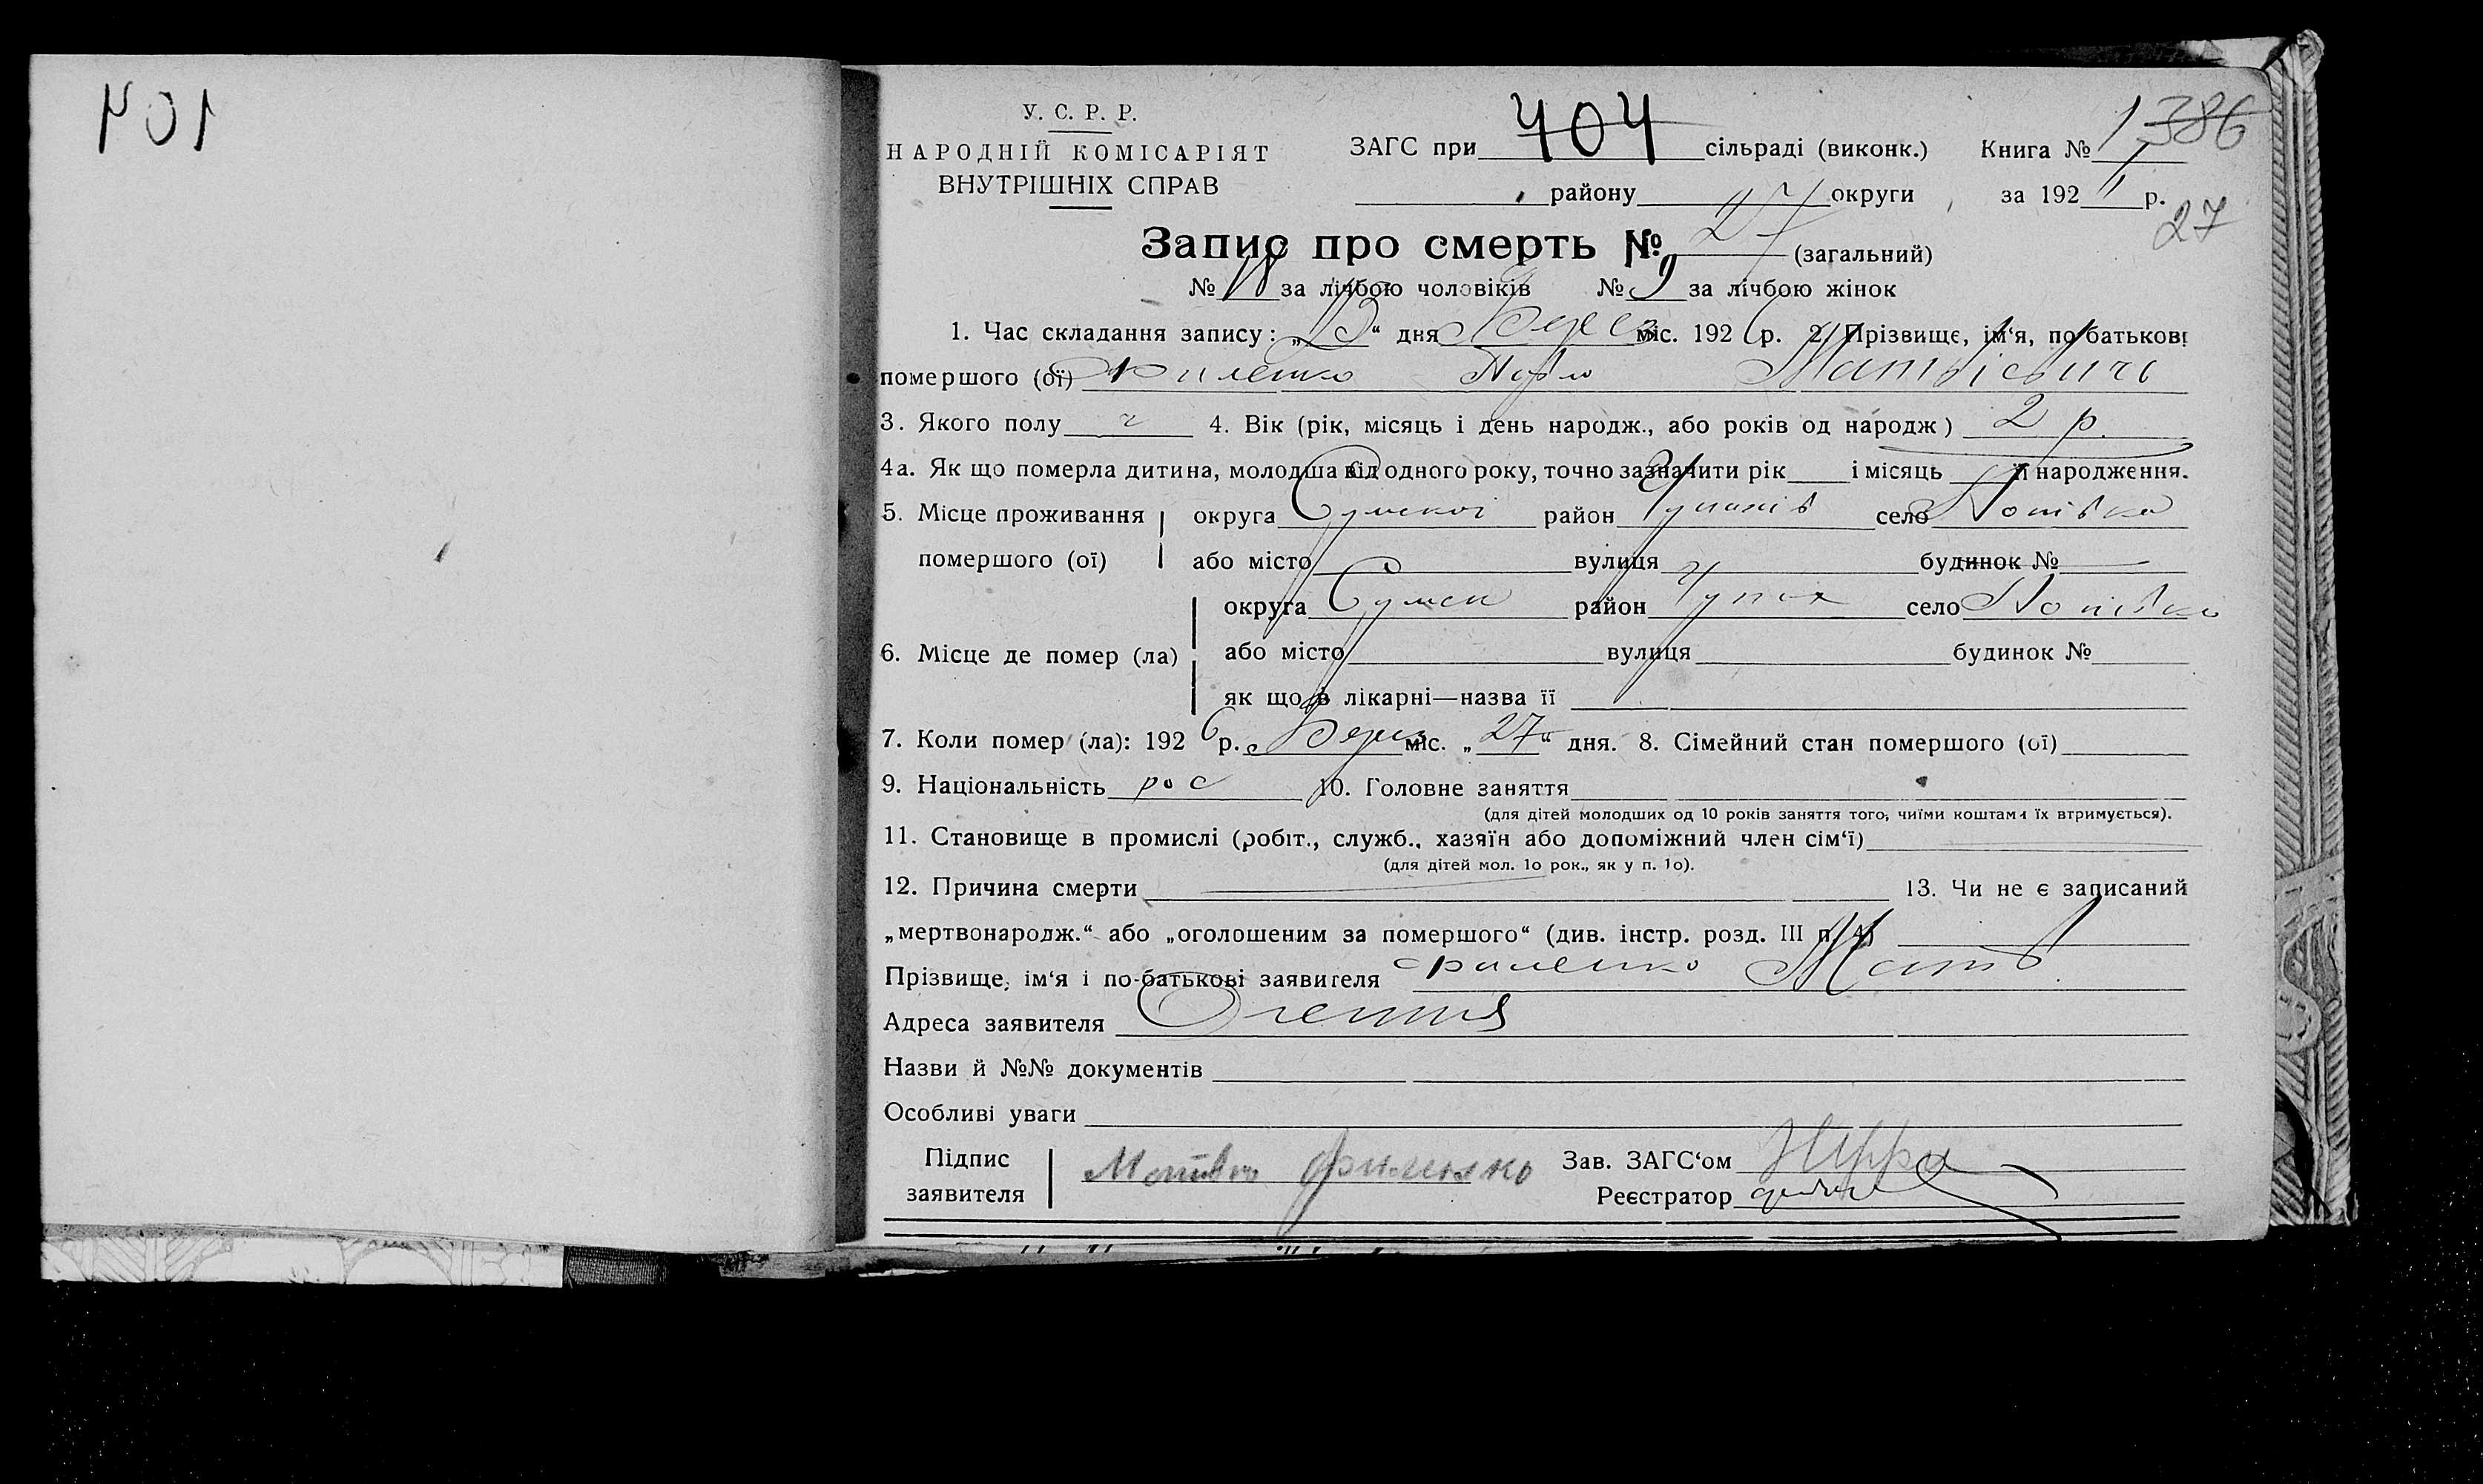 404
У. С. Р. Р.
НАРОДНІЙ КОМІСАРІЯТ
ВНУТРІШНІХ СПРАВ
ЗАГС при 404 сільраді (виконк.) Книга № 1 386
району округи за 192 р.
27
Запис про смерть № 27 (загальний)
№ 18 за лічбою чоловіків № 9 за лічбою жінок
1. Час складання запису: „ “ дня міс. 192 6 р. 2. Прізвище, ім‘я, по батькові
помершого (ої) Филенко Матвіевичъ
3. Якого полу ч 4. Вік (рік, місяць і день народж., або років од народж) 2 р.
4а. Як що померла дитина, молодша від одного року, точно зазначити рік і місяць її народження.
5. Місце проживання округа Сумской район Чупахів село
помершого (ої) або місто вулиця будинок №
округа Сумск район Чупах село
6. Місце де помер (ла) або місто вулиця будинок №
як що в лікарні—назва її
7. Коли помер (ла): 192 6 р. Берез міс. „ 27 “ дня. 8. Сімейний стан помершого (ої)
9. Національність рос 10. Головне заняття
(для дітей молодших од 10 років заняття того, чиїми коштами їх втримується).
11. Становище в промислі (робіт., служб., хазяїн або допоміжний член сім‘ї)
(для дітей мол. 1о рок., як у п. 1о).
12. Причина смерти 13. Чи не є записаний
„мертвонародж.“ або „оголошеним за помершого“ (див. інстр. розд. III п. 4)
Прізвище, ім‘я і по-батькові заявителя Филенко Матв
Адреса заявителя
Назви й №№ документів
Особливі уваги
Підпис
заявителя Филенко Зав. ЗАГС‘ом
Реєстратор